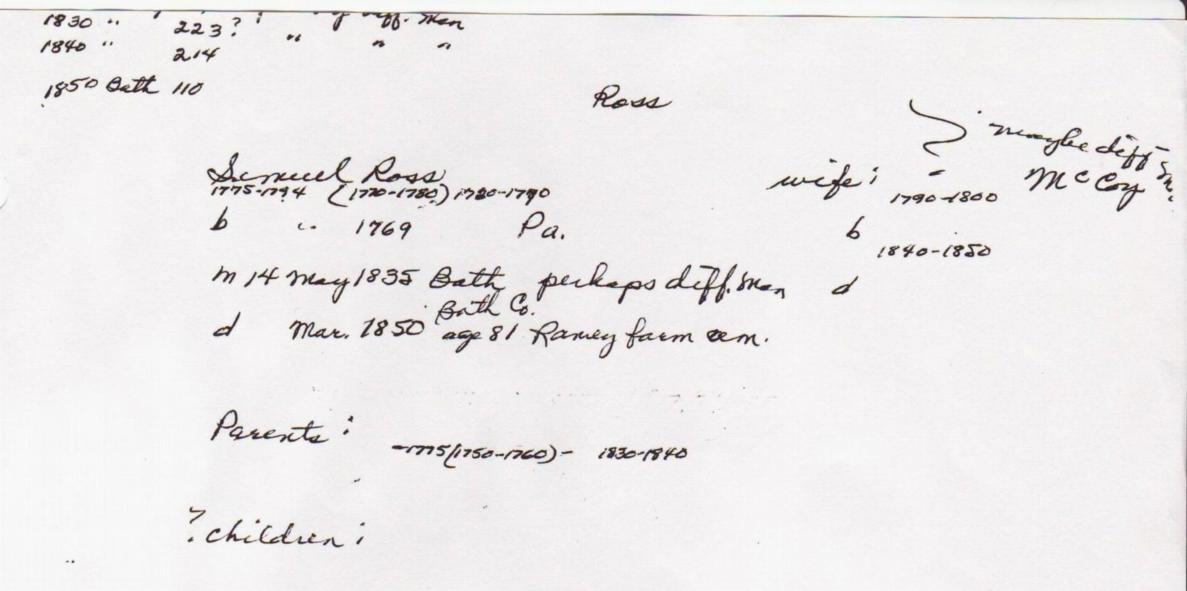 1830 " 223? diff. Man
1840 " 214 " " "
1850 Bath 110
Ross
maybe diff
Samuel Ross wife: - McCoy
1775-1794 (1770-1780) 1780-1790 1790-1800
b " 1769 Pa. b
1840-1850
m 14 May 1835 Bath perhaps diff. Man d
Bath Co.
d Mar. 1850 age 81 Ramey farm cem.
Parents:
-1775(1750-1760)- 1830-1840
? children: